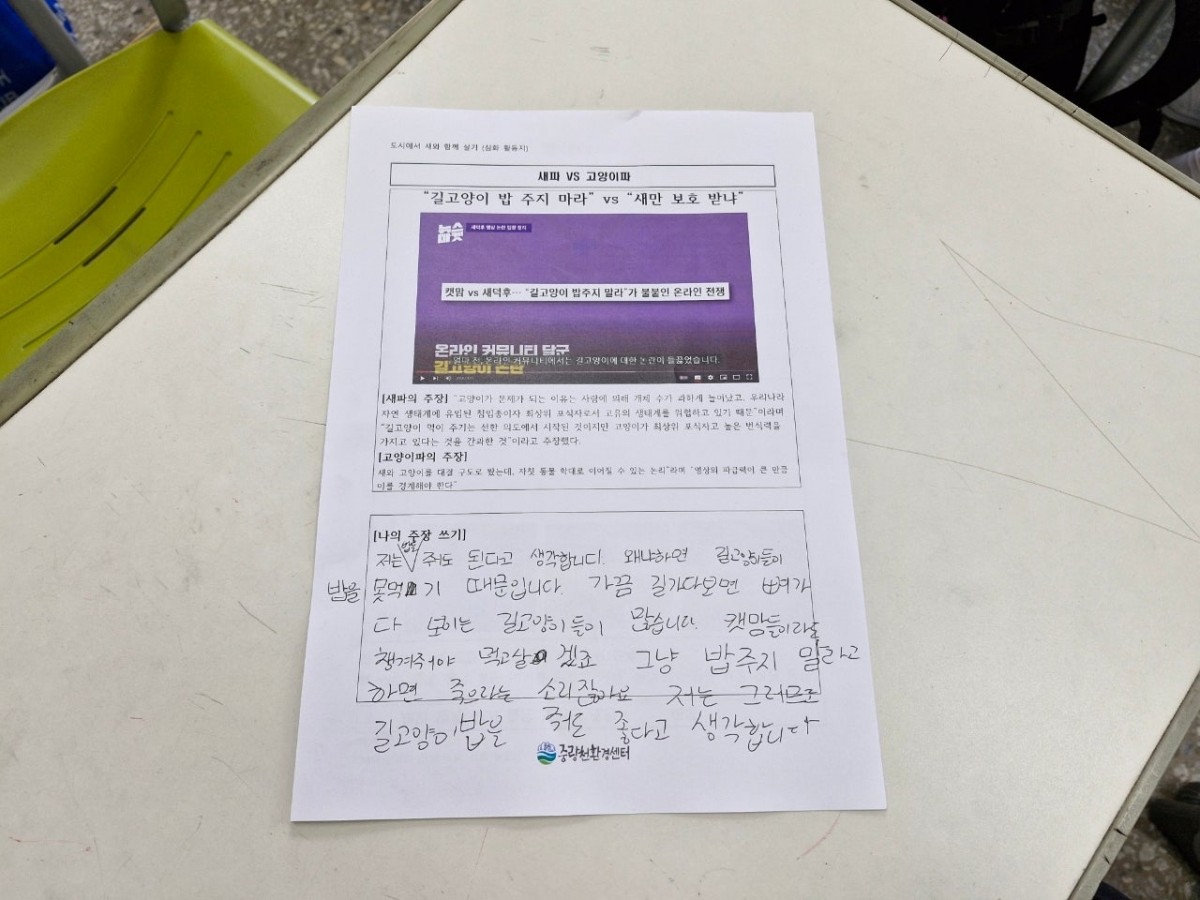 도시에서 새와 함께 살기 (심화 활동지)
새파 VS 고양이파
“길고양이 밥 주지 마라” vs “새만 보호 받냐”
캣맘 vs 새덕후… “길고양이 밥주지 말라”가 불붙인 온라인 전쟁
온라인 커뮤니티 달군
얼마 전, 온라인 커뮤니티에서는 길고양이에 대한 논란이 들끓었습니다.
길고양이 논란
[새파의 주장] “고양이가 문제가 되는 이유는 사람에 의해 개체 수가 과하게 늘어났고, 우리나라
자연 생태계에 유입된 침입종이자 최상위 포식자로서 고유의 생태계를 위협하고 있기 때문”이라며
“길고양이 먹이 주기는 선한 의도에서 시작된 것이지만 고양이가 최상위 포식자고 높은 번식력을
가지고 있다는 것을 간과한 것”이라고 주장했다.
[고양이파의 주장]
새와 고양이를 대결 구도로 봤는데, 자칫 동물 학대로 이어질 수 있는 논리”라며 “영상의 파급력이 큰 만큼
이를 경계해야 한다”
[나의 주장 쓰기]
저는 밥을 줘도 된다고 생각합니다. 왜냐하면 길고양이들이
밥을 못먹기 때문입니다. 가끔 길가다보면 뼈가
다 보이는 길고양이들이 많습니다. 캣맘들이라도
챙겨주어야 먹고살겠죠 그냥 밥주지 말라고
하면 죽으라는 소리잖아요 저는 그러므로
길고양이밥을 줘도 좋다고 생각합니다
중랑천환경센터